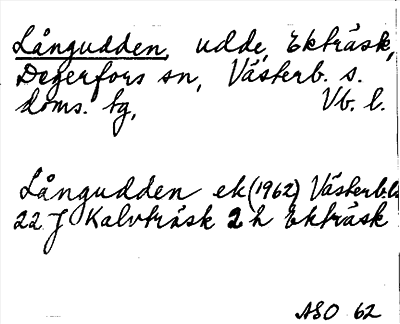 Långudden, udde, Ekträsk,
Degerfors sn, Västerb. s.
doms. tg, Vb. l.
Långudden ek (1962) Västerb
22 J Kalvträsk 2 h Ekträsk
ASO 62